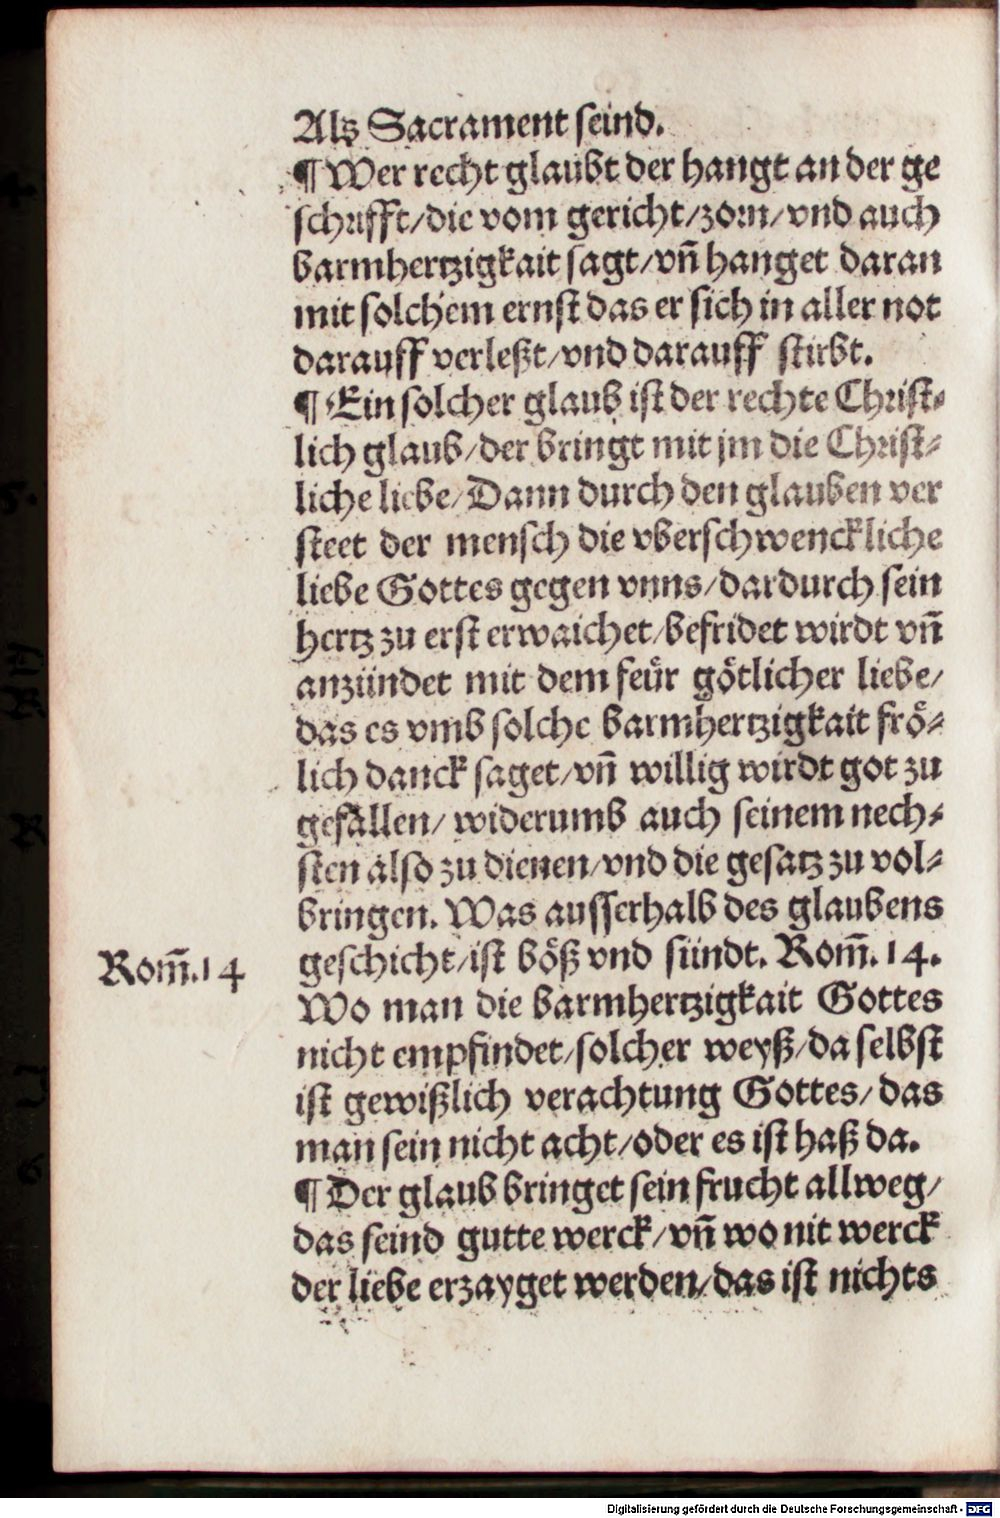 Alß Sacrament seind.
¶ Wer recht glaubt der hangt an der ge
schrifft/die vom gericht/zorn/vnd auch
barmhertzigkait sagt/vñ hanget daran
mit solchem ernst das er sich in aller not
darauff verleßt/vnd darauff stirbt.
¶ Ein solcher glaub ist der rechte Christ⸗
lich glaub/der bringt mit jm die Christ⸗
liche liebe/Dann durch den glauben ver
steet der mensch die vberschwenckliche
liebe Gottes gegen vnns/dardurch sein
hertz zu erst erwaichet/befridet wirdt vñ
anzündet mit dem feür götlicher liebe/
das es vmb solche barmhertzigkait frö⸗
lich danck saget/vñ willig wirdt got zu
gefallen/ widerumb auch seinem nech⸗
sten also zu dienen/vnd die gesatz zu vol⸗
bringen. Was ausserhalb des glaubens
geschicht/ist böß vnd sündt. Rom̃.14.
Rom̃.14
Wo man die barmhertzigkait Gottes
nicht empfindet/solcher weyß/da selbst
ist gewißlich verachtung Gottes/das
man sein nicht acht/oder es ist haß da.
¶ Der glaub bringet sein frucht allweg/
das seind gutte werck/vñ wo nit werck
der liebe erzayget werden/das ist nichts
Digitalisierung gefördert durch die Deutsche Forschungsgemeinschaft - DFG